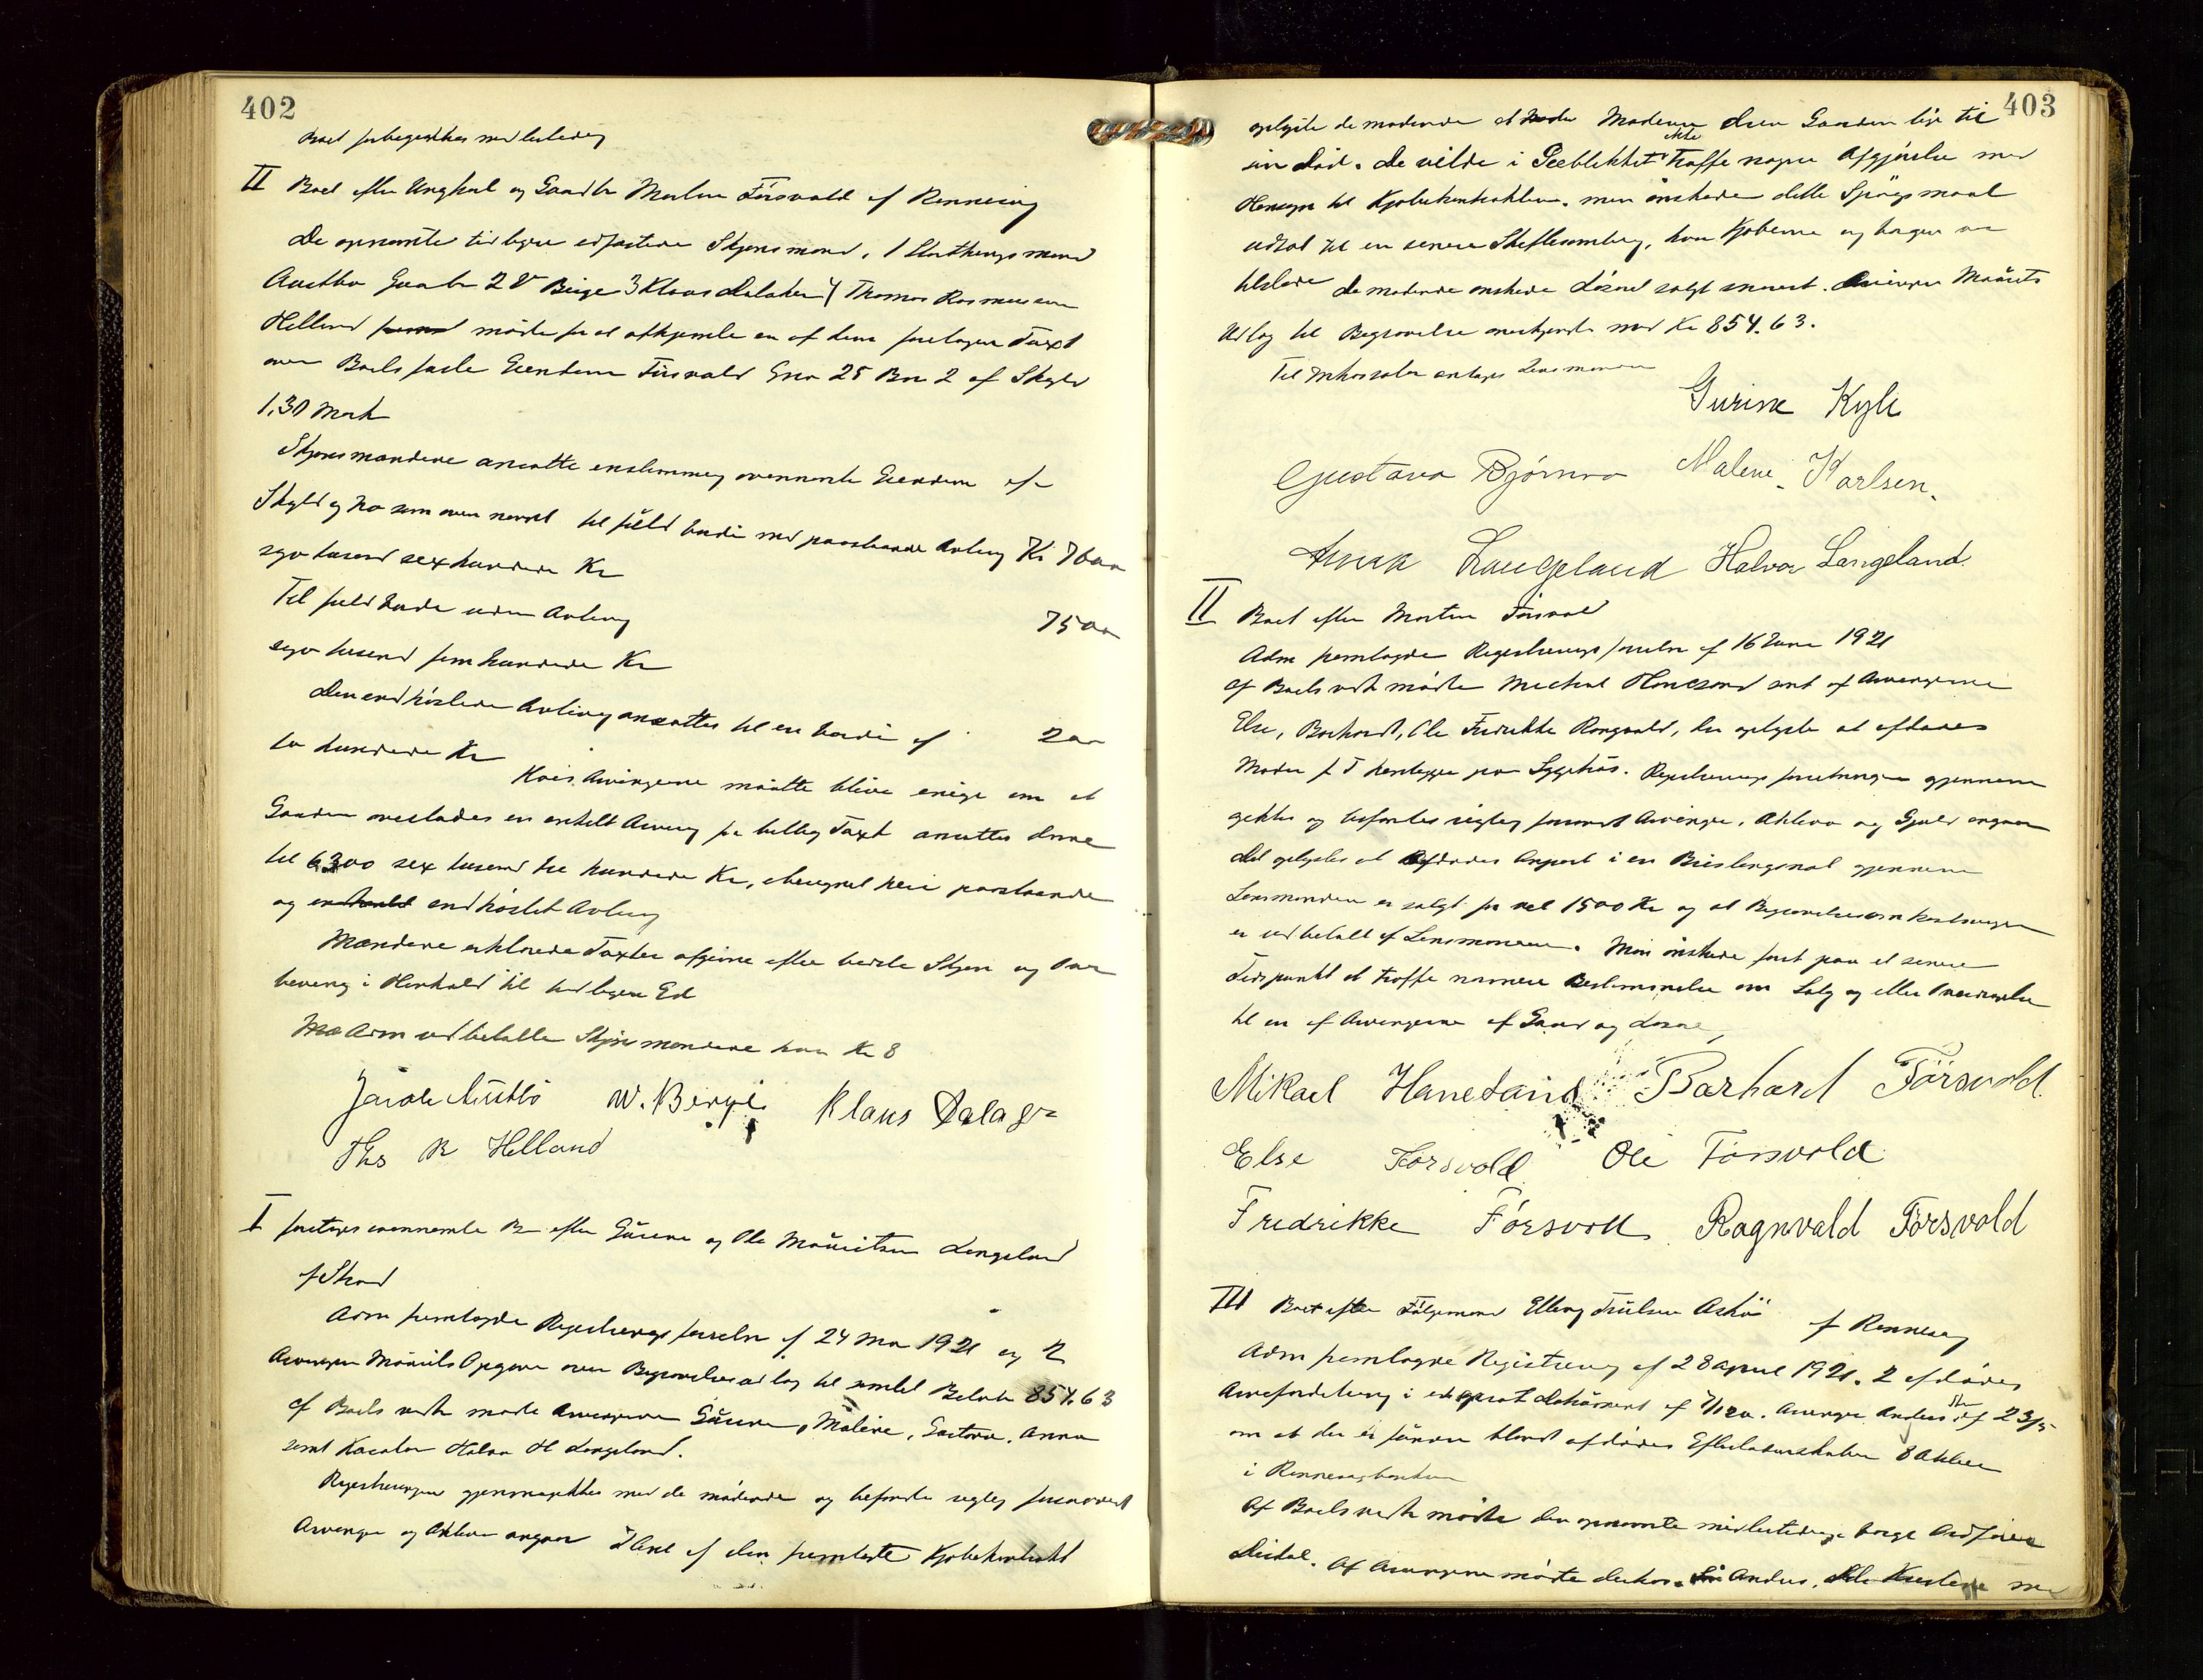 402
Boet
II Boet efter Ungkarl og Gaardbr Morten Försvold af Rennesøy
De opnævnte tidligere edfæstede Skjønsmænd, 1 Storthingsmand
Austbø Gaardbr 2 V Berge 3 Klaus Dalaker 4 Thomas Rasmussen
Helland mødte for at afhjemle en af dem foretagen Taxt
over Boets faste Eiendom Försvold Gno 25 Bn 2 af Skyld
1,30 Mark
Skjønsmændene ansatte enstemmig ovennævnte Eiendom af
Skyld og No som oven nævnt til fuld Værdi med paastaaende Avling Kr 7600
syv tusend sex hundrede Kr
Til fuld Værdi uden Avling 7500
syv tusend fem hundrede Kr
Den endhöstede Avling ansattes til en Værdi af 200
to hundrede Kr
Hvis Arvingerne maatte blive enige om at
Gaarden overlades en enkelt Arving for billig Taxt ansattes denne
til 6300 sex tusend tre hundrede Kr, iberegnet heri paastaaende
og endhöstet Avling
Mændene erklærede Taxten afgivne efter bedste Skjøn og Over
bevisning i Henhold til tidligere Ed
Adm udbetalte Skjønsmændene hver Kr 8
Jacob Austbö W. Berge Klaus Dalager
Ths R Helland
I foretoges ovennævnte Bo efter Gurine og Ole Mauritsen Langeland
af Strand
Adm fremlagde Registreringsforretn af 24 Mai 1921 og 2
Arvingen Maurits Opgave over Begravelsesudlæg til samlet Beløb 854.63
af Boets vedk mødte Arvingerne Gurine, Malene, Gustava, Anna
samt Halvor H Langeland.
Registreringen gjennemgikkes med de mødende og befandtes rigtig forsaavidt
Arvinger og Aktiva angaar I Anl af den fremlagte Kjøbekontrakt
403
oplyste de mødende at Moderen drev Gaarden lige til
sin Død. De vilde i Øieblikket ikke træffe nogen Afgjørelse med
Hensyn til Kjøbekontrakten, men ønskede dette Spørgsmaal
udsat til en senere Skiftesamling, hvor Kjøberne og
tilstede De mødende ønskede Løsøret solgt snarest. Arvingen Maurits
Udlæg til Begravelse anerkjendtes med Kr 854.63.
Til Inkassator antages Lensmanden
Gurine Kyle
Gustava Bjørnvo Malene Karlsen.
Anna Langeland Halvor Langeland.
II Boet efter Morten Försvold
Adm fremlagde Registreringsforretn af 16 Juni 1921
af Boets vedk mødte Mechal Hanesand samt af Arvingerne
Else, Barhard, Ole Fredrikke Rangvald, der oplyste at afdødes
Moder f T henligger paa Sygehus. Registreringsforretningen gjennem
gikkes og befandtes rigtig forsaavidt Arvinger, Aktiva og Gjæld angaar
Det oplystes at Afdødes Anpart i en gjennem
Lensmanden er solgt for vel 1500 Kr og at Begravelsesomkostningen
er udbetalt af Lensmanden. Man ønskede først paa et senere
Tidspunkt at træffe nærmere Bestemmelse om Salg og eller Overdragelse
til en af Arvingerne af Gaard og Løsøre
Mikael Hanesand Barhard Försvold.
Else Försvold Ole Försvold
Fredrikke Försvold Ragnvald Försvold
III Boet efter Følgemand Elling Askø af Rennesøy
Adm fremlagde Registrering af 28 April 1921. 2 afdødes
Arvefordeling i Dokument af Arvingen Anders af 23/5
om at der ei findes blandt afdødes Efterladenskaber 8 Aktier
i Rennesøybanken
Af Boets vedk mødte den opnævnte midlertidige Værge Ordfører
Af Arvingerne mødte Anders,